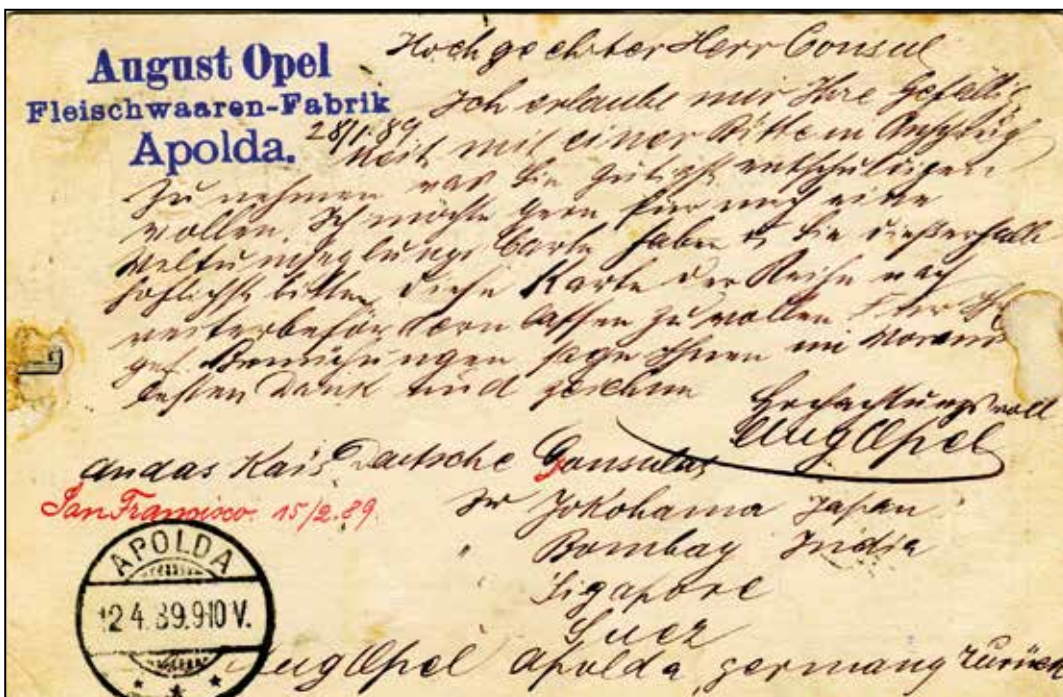 August Opel
Fleischwaaren-Fabrik
Apolda.
28/1.89
Hochgeehrter Herr Consul
Ich erlaube mir Ihre Gefällig
keit mit einer Bitte in Anspruch
zu nehmen was Sie gütigst entschuldigen
wollen. Ich möchte gern für mich eine
Weltumseglungs Carte haben u. Sie dießerhalb
höflichst bitten, diese Karte der Reihe nach
weiterbefördern lassen zu wollen. Für Ihre
gef. Bemühungen sage Ihnen im Voraus
besten Dank und zeichne
Hochachtungsvoll
Aug Opel
An das Kais Deutsche Consulat
San Francisco. 15/2.89.
in Jokohama Japan
" Bombay India
Sigapore
Suez
APOLDA
12 4.89.9-10 V.
Aug Opel Apolda, Germany zurück